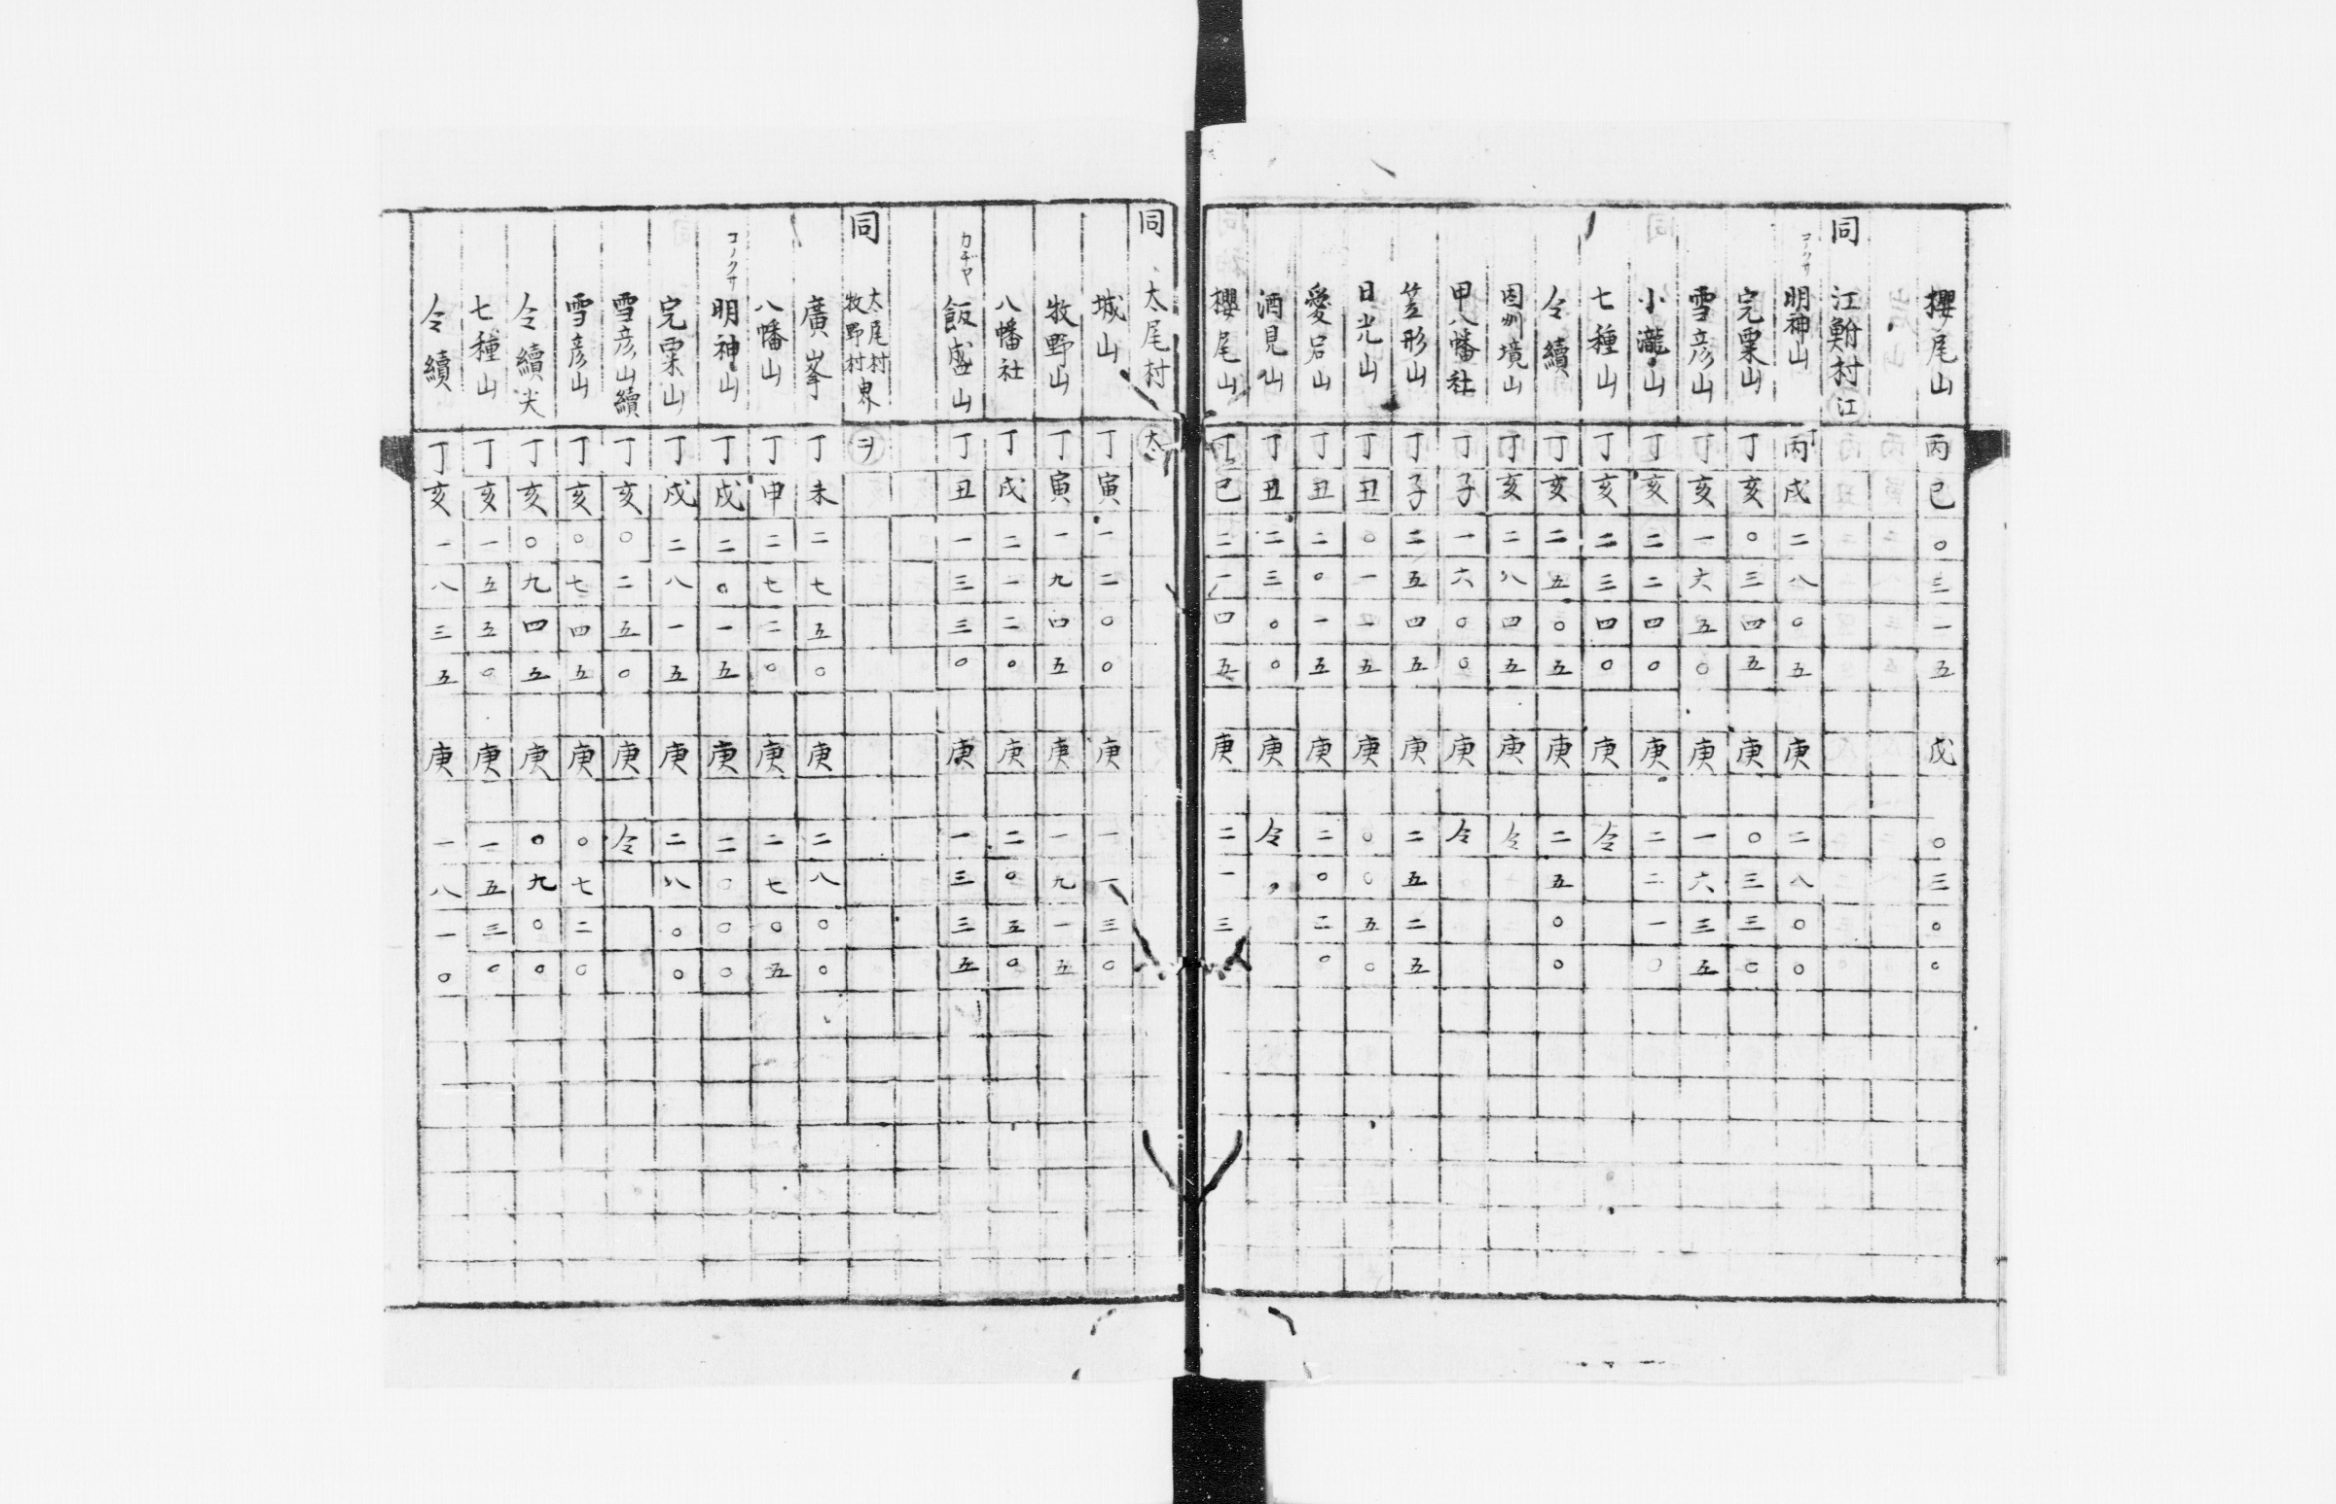 櫻尾山 丙巳 〇三一五 戊 〇三〇〇
同 江鮒村 江
コノクサ 明神山 丙戌 二八〇五 庚 二八〇〇
完粟山 丁亥 〇三四五 庚 〇三三〇
雪彦山 丁亥 一六五〇 庚 一六三五
小瀧山 丁亥 二二四〇 庚 二二一〇
七種山 丁亥 二三四〇 庚 令
令續 丁亥 二五〇五 庚 二五〇〇
因州境山 丁亥 二八四五 庚 令
甲八幡社 丁子 一六〇〇 庚 令
笠形山 丁子 二五四五 庚 二五二五
日光山 丁丑 〇一一五 庚 〇〇五〇
愛宕山 丁丑 二〇一五 庚 二〇二〇
酒見山 丁丑 二三〇〇 庚 令
櫻尾山 丁巳 二一四五 庚 二一三
同 太尾村 太
城山 丁寅 一二〇〇 庚 一一三〇
牧野山 丁寅 一九四五 庚 一九一五
八幡社 丁戌 二一二〇 庚 二〇五〇
カヂヤ 飯盛山 丁丑 一三三〇 庚 一三三五
同 太尾村 牧野村 界 ヲ
廣峯 丁未 二七五〇 庚 二八〇〇
八幡山 丁申 二七二〇 庚 二七〇五
コノクサ 明神山 丁戌 二〇一五 庚 二〇〇〇
完粟山 丁戌 二八一五 庚 二八〇〇
雪彦山續 丁亥 〇二五〇 庚 令
雪彦山 丁亥 〇七四五 庚 〇七二〇
令續尖 丁亥 〇九四五 庚 〇九〇〇
七種山 丁亥 一五五〇 庚 一五三〇
令續 丁亥 一八三五 庚 一八一〇